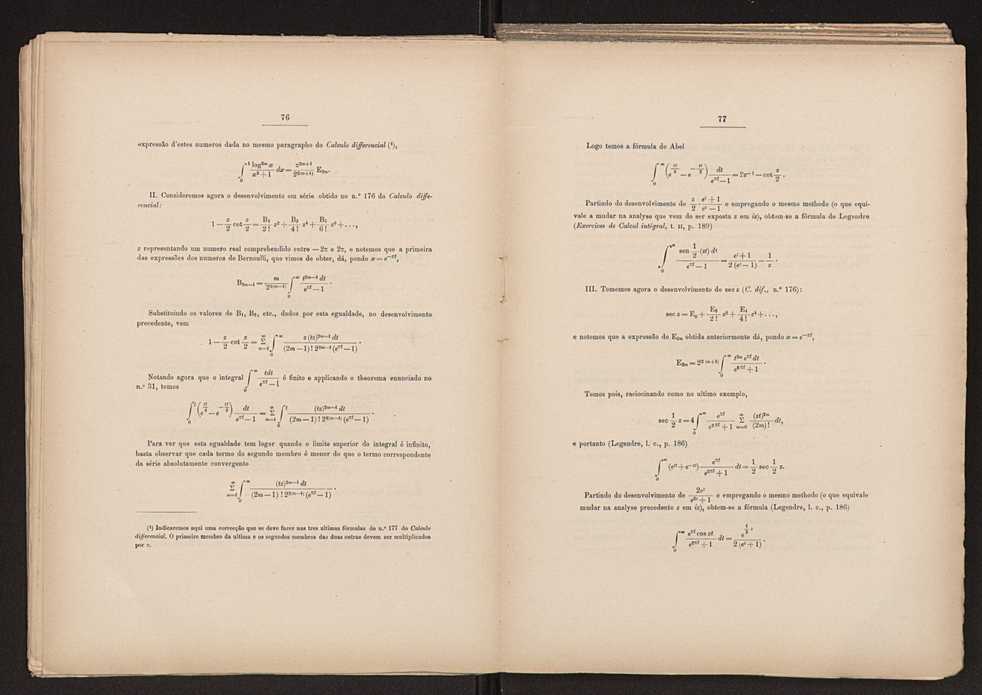 76
expressão d'estes numeros dada no mesmo paragrapho do Calculo differencial (¹),
∫₀¹ log²ᵐ x / (x² + 1) dx =
II. Consideremos agora o desenvolvimento em série obtido no n.º 176 do Calculo diffe-
rencial:
1 − z/2 cot z/2 = B₁/2! z² + B₃/4! z⁴ + B₅/6! z⁶ + ...,
z representando um numero real comprehendido entre − 2π e 2π, e notemos que a primeira
das expressões dos numeros de Bernoulli, que vimos de obter, dá, pondo x = e^{−πt},
Substituindo os valores de B₁, B₃, etc., dados por esta egualdade, no desenvolvimento
precedente, vem
Notando agora que o integral ∫₀^∞ tdt / (e^{πt} − 1) é finito e applicando o theorema enunciado no
n.º 31, temos
Para ver que esta egualdade tem logar quando o limite superior do integral é infinito,
basta observar que cada termo do segundo membro é menor do que o termo correspondente
da série absolutamente convergente
(¹) Indicaremos aqui uma correcção que se deve fazer nas tres ultimas fórmulas do n.º 177 do Calculo
differencial. O primeiro membro da ultima e os segundos membros das duas outras devem ser multiplicados
por π.
77
Logo temos a fórmula de Abel
Partindo do desenvolvimento de z/2 · (e^z + 1)/(e^z − 1) e empregando o mesmo methodo (o que equi-
vale a mudar na analyse que vem de ser exposta z em iz), obtem-se a fórmula de Legendre
(Exercices de Calcul intégral, t. II, p. 189)
∫₀^∞ sen 1/2 (zt) dt / (e^{πt} − 1) = (e^z + 1) / 2 (e^z − 1) − 1/z .
III. Tomemos agora o desenvolvimento de sec z (C. dif., n.º 176):
sec z = E₀ + E₂/2! z² + E₄/4! z⁴ + ...,
e notemos que a expressão de E₂ₘ obtida anteriormente dá, pondo x = e^{−πt},
Temos pois, raciocinando como no ultimo exemplo,
e portanto (Legendre, l. c., p. 186)
∫₀^∞ (e^{zt} + e^{−zt}) e^{πt} / (e^{2πt} + 1) dt = 1/2 sec 1/2 z.
Partindo do desenvolvimento de 2e^z / (e^{2z} + 1) e empregando o mesmo methodo (o que equivale
mudar na analyse precedente z em iz), obtem-se a fórmula (Legendre, l. c., p. 186)